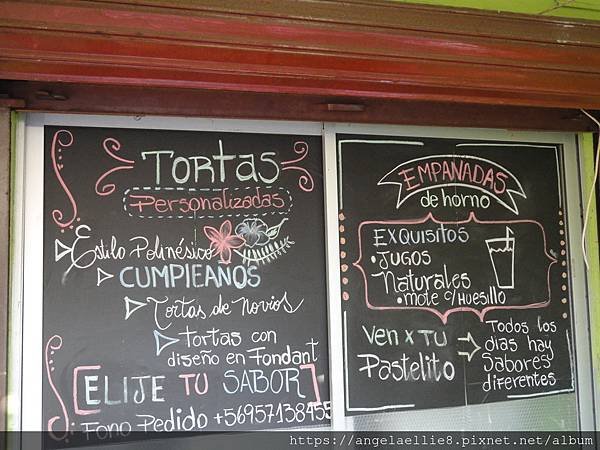 TORTAS
Personalizadas
Estilo Polinésico
CUMPLEAÑOS
Tortas de novios
tortas con
diseño en Fondant
ELIJE TU SABOR
Fono Pedido +56957138455
EMPANADAS
de horno
EXQUISITOS
• JUGOS
Naturales
• mote c/HUESILLO
Ven x TU
Pastelito
Todos los
días hay
Sabores
diferentes
https://angelaellie8.pixnet.net/album